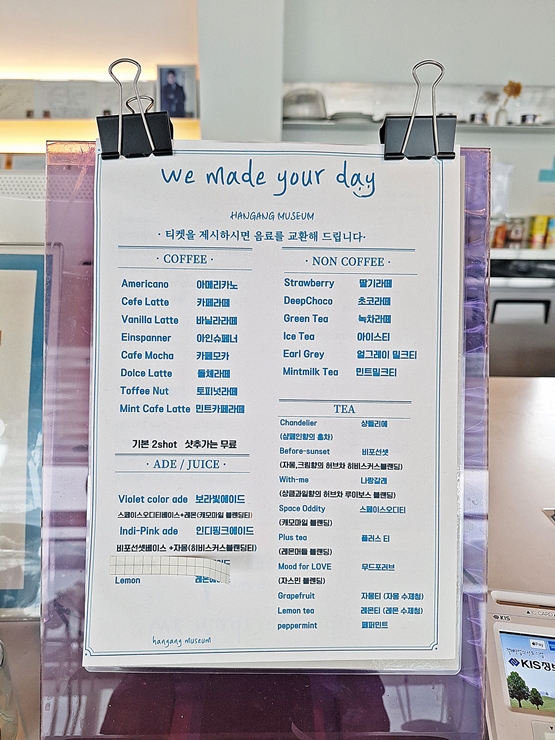 we made your day
HANGANG MUSEUM
· 티켓을 제시하시면 음료를 교환해 드립니다·
· COFFEE ·
Americano 아메리카노
Cefe Latte 카페라떼
Vanilla Latte 바닐라라떼
Einspanner 아인슈페너
Cafe Mocha 카페모카
Dolce Latte 돌체라떼
Toffee Nut 토피넛라떼
Mint Cafe Latte 민트카페라떼
기본 2shot 샷추가는 무료
· ADE / JUICE ·
Violet color ade 보라빛에이드
스페이스오디티베이스+레몬(캐모마일 블렌딩)
Indi-Pink ade 인디핑크에이드
비포선셋베이스 +자몽(히비스커스블렌딩)
Lemon
· NON COFFEE ·
Strawberry 딸기라떼
DeepChoco 초코라떼
Green Tea 녹차라떼
Ice Tea 아이스티
Earl Grey 얼그레이 밀크티
Mintmilk Tea 민트밀크티
TEA
Chandelier 샹들리에
(샴페인향의 홍차)
Before-sunset 비포선셋
(자몽,크림향의 허브차 히비스커스블렌딩)
With-me 나랑갈래
(상큼과일향의 허브차 루이보스 블렌딩)
Space Oddity 스페이스오디티
(캐모마일 블렌딩)
Plus tea 플러스 티
(레몬머틀 블렌딩)
Mood for LOVE 무드포러브
(자스민 블렌딩)
Grapefruit 자몽티 (자몽 수제청)
Lemon tea 레몬티 (레몬 수제청)
peppermint 페퍼민트
hangang museum
KIS
Pay
KIS정보